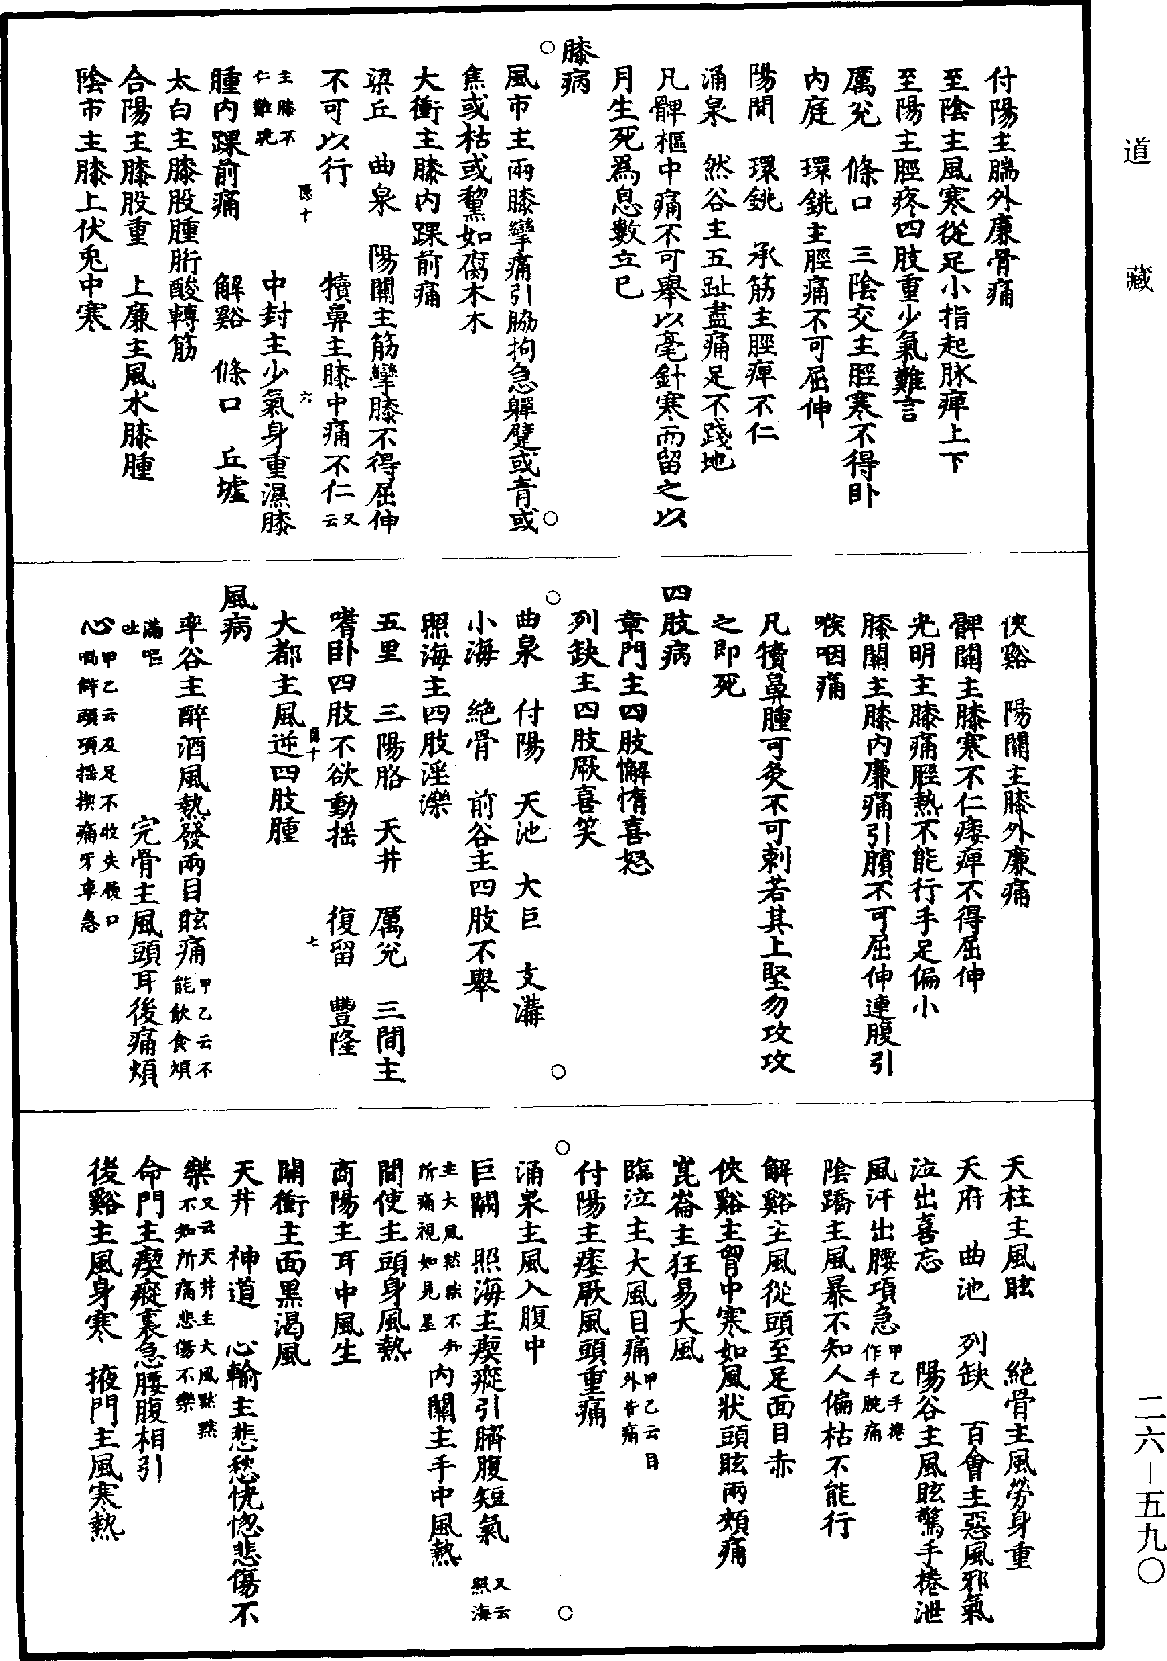 道藏
付陽主腨外廉骨痛
至陰主風寒從足小指起脉痺上下
至陽主脛疼四肢重少氣難言
厲兌　條口　三陰交主脛寒不得臥
內庭　環銚主脛痛不可屈伸
陽間　環銚　承筋主脛痺不仁
涌泉　然谷主五趾盡痛足不踐地
凡髀樞中痛不可舉以毫針寒而留之以
月生死為息數立已
膝病
風市主兩膝攣痛引脇拘急嚲躄或青或
焦或枯或黧如腐木木
大衝主膝內踝前痛
梁丘　曲泉　陽關主筋攣膝不得屈伸
不可以行　犢鼻主膝中痛不仁又云
主膝不仁難跪　中封主少氣身重濕膝
腫內踝前痛　解谿　條口　丘墟
太白主膝股腫胻酸轉筋
合陽主膝股重　上廉主風水膝腫
陰市主膝上伏兎中寒
俠谿　陽關主膝外廉痛
髀關主膝寒不仁痿痺不得屈伸
光明主膝痛脛熱不能行手足偏小
膝關主膝內廉痛引臏不可屈伸連腹引
喉咽痛
凡犢鼻腫可灸不可刺若其上堅勿攻攻
之即死
四肢病
章門主四肢懈惰喜怒
列缺主四肢厥喜笑
曲泉　付陽　天池　大巨　支溝
小海　絕骨　前谷主四肢不舉
照海主四肢淫濼
五里　三陽胳　天井　厲兌　三間主
嗜臥四肢不欲動摇　復留　豐隆
大都主風逆四肢腫
風病
率谷主醉酒風熱發兩目眩痛甲乙云不能飲食煩
滿嘔吐　完骨主風頭耳後痛煩
心甲乙云及足不收失履口喎僻頭項摇瘈痛牙車急
天柱主風眩　絕骨主風勞身重
天府　曲池　列缺　百會主惡風邪氣
泣出喜忘　陽谷主風眩驚手捲泄
風汗出腰項急甲乙手捲作手腕痛
陰蹻主風暴不知人偏枯不能行
解谿主風從頭至足面目赤
俠谿主胷中寒如風狀頭眩兩頰痛
崑崙主狂易大風
臨泣主大風目痛甲乙云目外眥痛
付陽主痿厥風頭重痛
涌泉主風入腹中
巨闕　照海主瘈瘲引臍腹短氣又云照海
主大風默默不知所痛視如見星　內關主手中風熱
間使主頭身風熱
商陽主耳中風生
關衝主面黑渴風
天井　神道　心輸主悲愁恍惚悲傷不
樂又云天井主大風默默不知所痛悲傷不樂
命門主瘈瘲裏急腰腹相引
後谿主風身寒　掖門主風寒熱
二六—五九〇